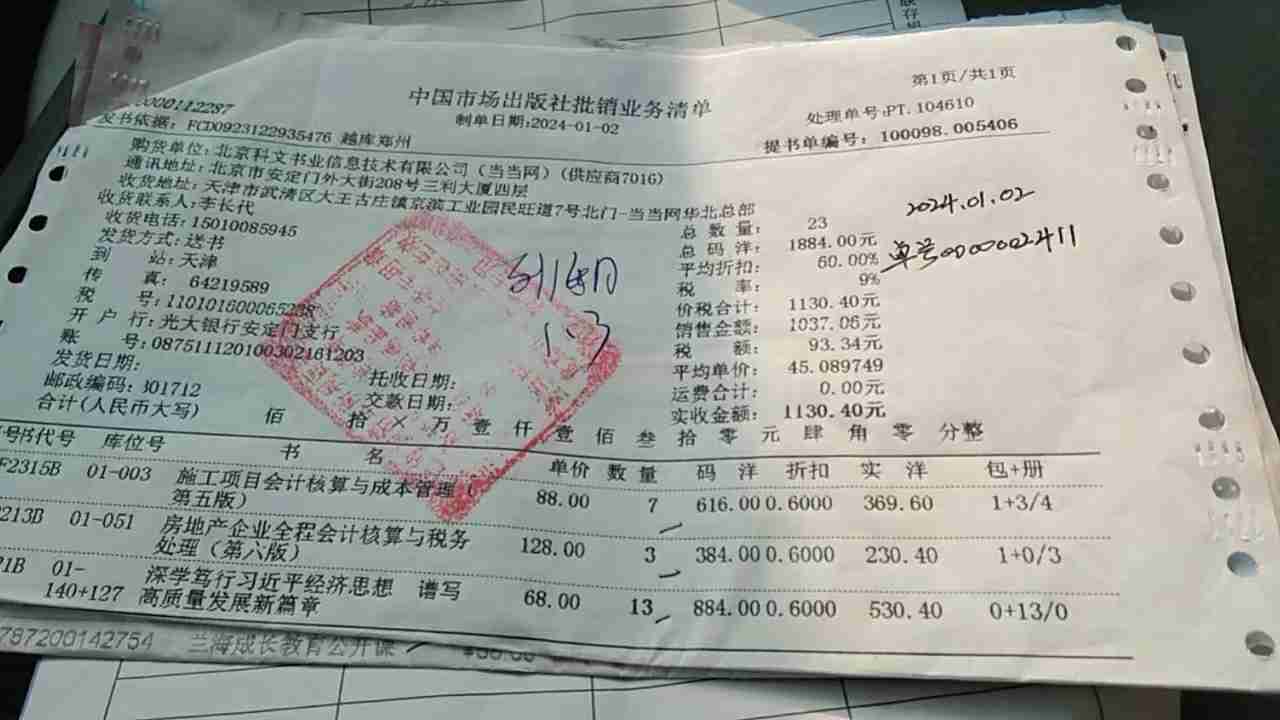 第1页/共1页
中国市场出版社批销业务清单
0000112287
制单日期:2024-01-02
处理单号:PT.104610
发书依据: FCD0923122935476 越库郑州
提书单编号: 100098.005406
购货单位: 北京科文书业信息技术有限公司(当当网)(供应商7016)
通讯地址: 北京市安定门外大街208号三利大厦四层
收货地址: 天津市武清区大王古庄镇京滨工业园民旺道7号北门-当当网华北总部
收货联系人: 李长代
总数量: 23
2024.01.02
收货电话: 15010085945
总码洋: 1884.00元
单号0000002411
发货方式: 送书
平均折扣: 60.00%
到站: 天津
税率: 9%
传真: 64219589
价税合计: 1130.40元
税号:
销售金额: 1037.06元
1.3
开户行: 光大银行安定门支行
税额: 93.34元
账号: 08751112010030216​1203
平均单价: 45.089749
发货日期:
托收日期:
运费合计: 0.00元
邮政编码: 301712
交款日期:
实收金额: 1130.40元
合计(人民币大写) 佰 拾 × 万 壹 仟 壹 佰 叁 拾 零 元 肆 角 零 分整
号书代号 库位号 书名 单价 数量 码洋 折扣 实洋 包+册
F2315B 01-003 施工项目会计核算与成本管理( 88.00 7 616.00 0.6000 369.60 1+3/4
第五版)
213B 01-051 房地产企业全程会计核算与税务 128.00 3 384.00 0.6000 230.40 1+0/3
处理(第六版)
21B 01- 深学笃行习近平经济思想 谱写 68.00 13 884.00 0.6000 530.40 0+13/0
140+127 高质量发展新篇章
787200142754 兰海成长教育公开课